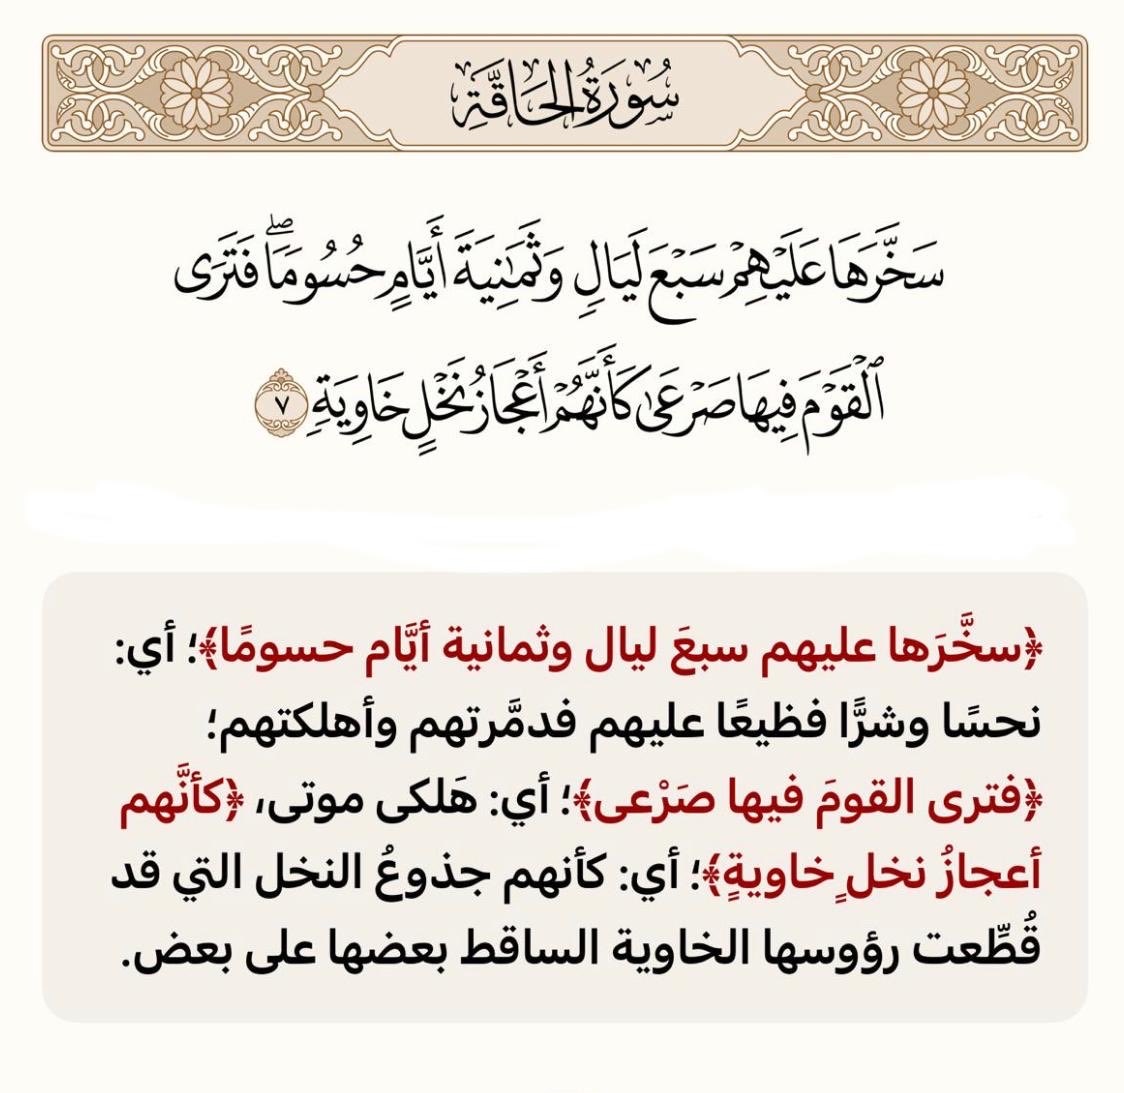 سُورَةُ الحَاقَّةِ
سَخَّرَهَا عَلَيْهِمْ سَبْعَ لَيَالٍ وَثَمَٰنِيَةَ أَيَّامٍ حُسُومًاۖ فَتَرَى
ٱلْقَوْمَ فِيهَا صَرْعَىٰ كَأَنَّهُمْ أَعْجَازُ نَخْلٍ خَاوِيَةٍ ٧
﴿سخَّرَها عليهم سبعَ ليال وثمانية أيَّام حسومًا﴾؛ أي:
نحسًا وشرًّا فظيعًا عليهم فدمَّرتهم وأهلكتهم؛
﴿فترى القومَ فيها صَرْعى﴾؛ أي: هَلكى موتى، ﴿كأنَّهم
أعجازُ نخل ٍخاويةٍ﴾؛ أي: كأنهم جذوعُ النخل التي قد
قُطِّعت رؤوسها الخاوية الساقط بعضها على بعض.